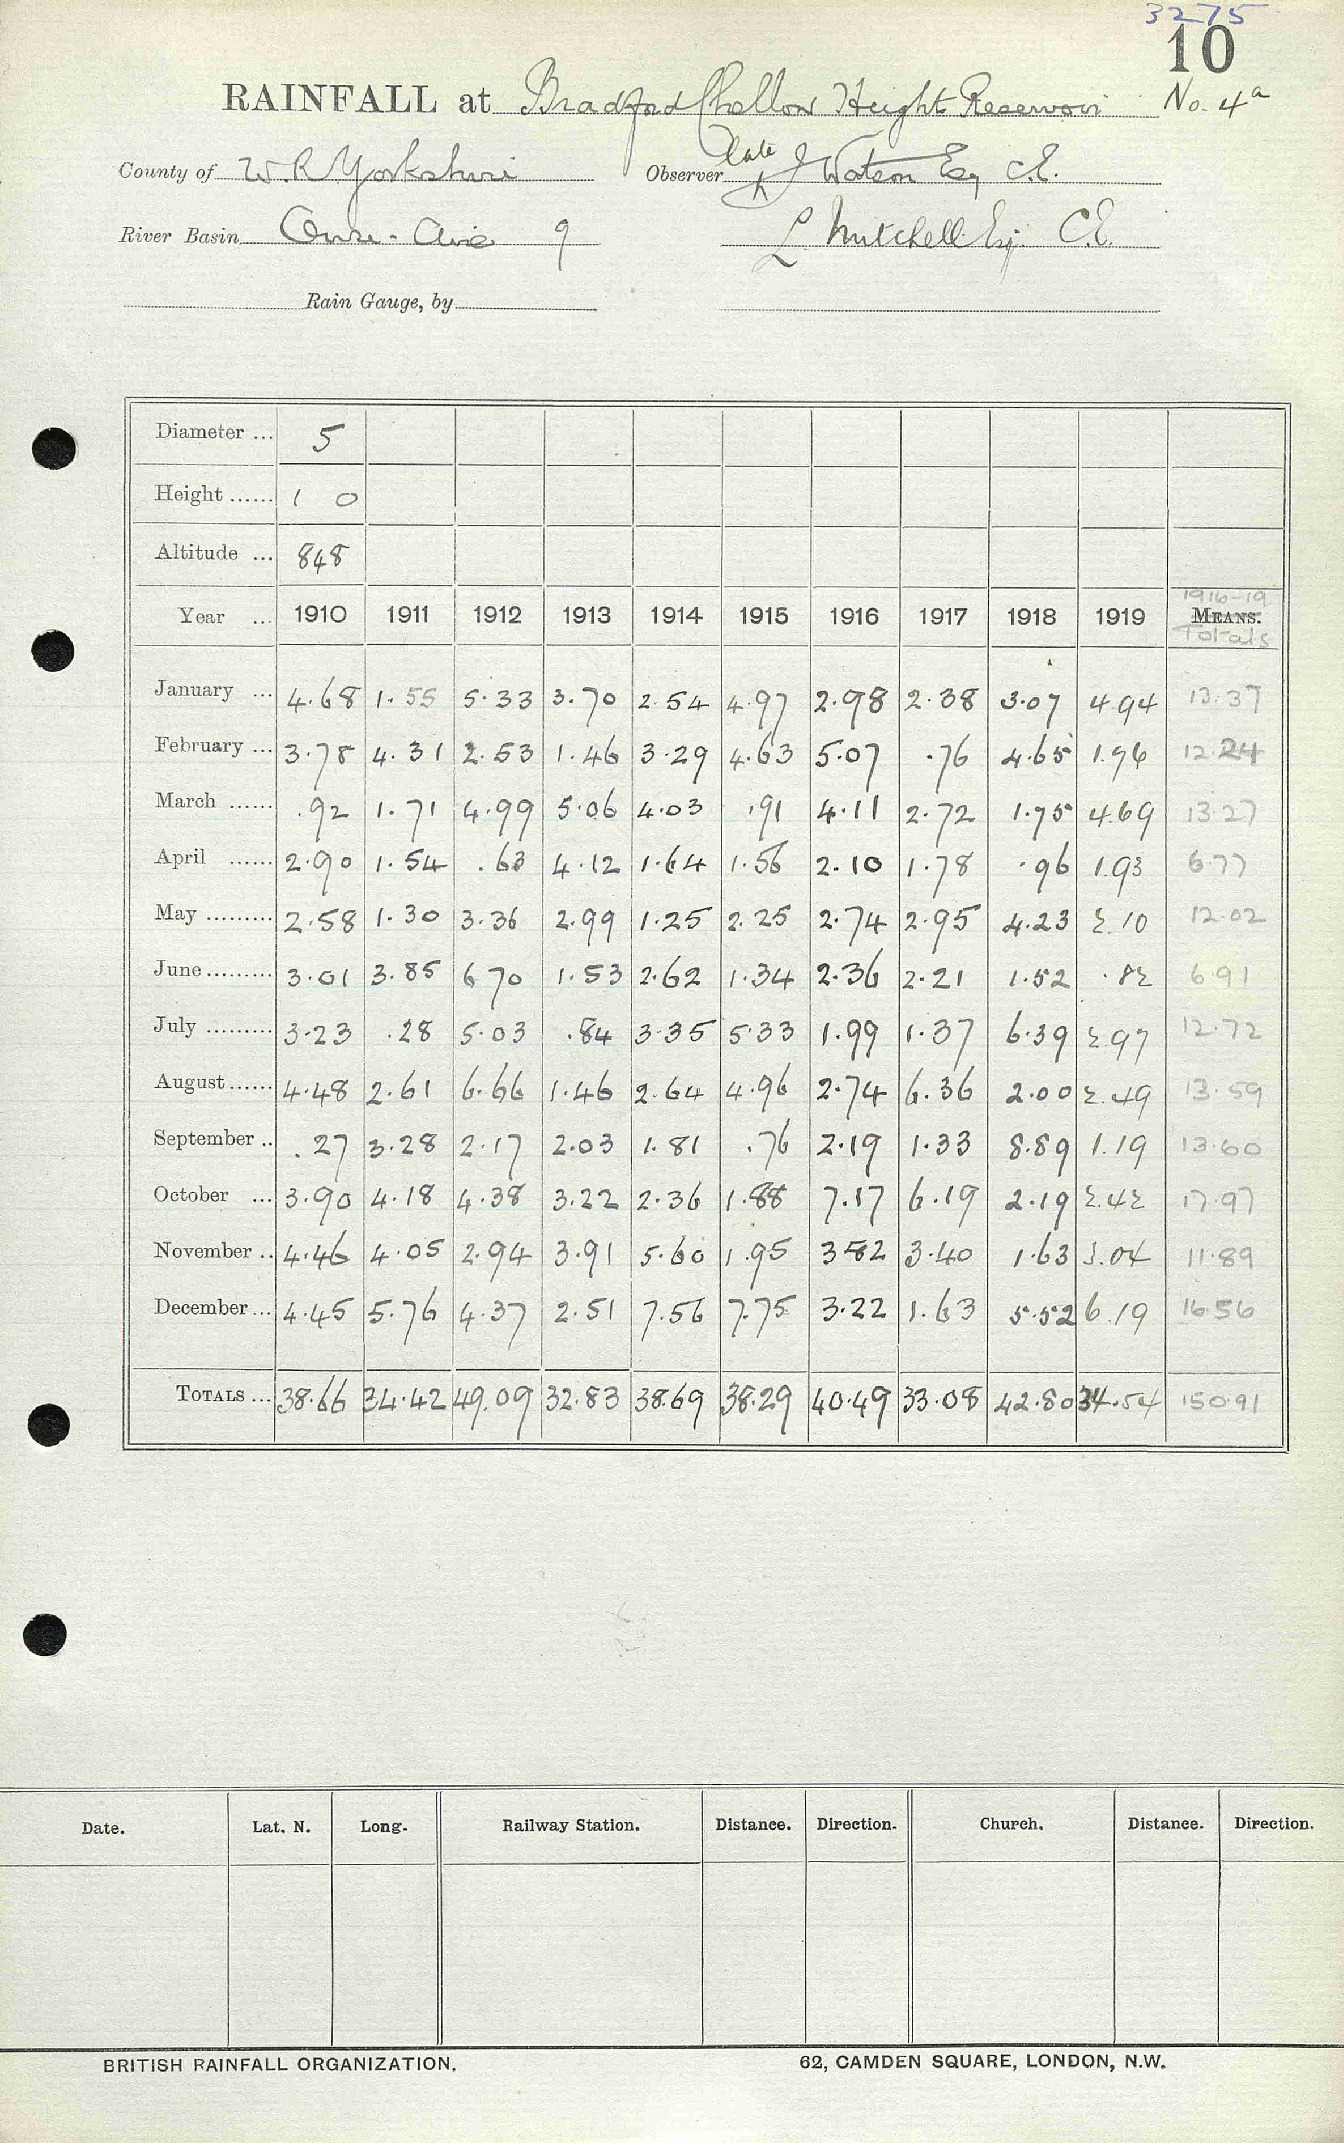 3275
10
RAINFALL at Bradford Chellow Height Reservoir No. 4a
County of W. R Yorkshire Observer late J Watson Esq C.E.
River Basin Ouse - Aire 9 L Mitchell Esq. C.E.
Rain Gauge, by
Diameter ... 5
Height ...... 1 0
Altitude ... 848
Year ... 1910 1911 1912 1913 1914 1915 1916 1917 1918 1919 1916-19 MEANS. Totals
January ... 4.68 1.55 5.33 3.70 2.54 4.97 2.98 2.38 3.07 4.94 13.37
February ... 3.78 4.31 2.53 1.46 3.29 4.63 5.07 .76 4.65 1.76 12.24
March ...... .92 1.71 4.99 5.06 4.03 .91 4.11 2.72 1.75 4.69 13.27
April ...... 2.90 1.54 .63 4.12 1.64 1.56 2.10 1.78 .96 1.93 6.77
May ......... 2.58 1.30 3.36 2.99 1.25 2.25 2.74 2.95 4.23 2.10 12.02
June ......... 3.01 3.85 6 70 1.53 2.62 1.34 2.36 2.21 1.52 .82 6.91
July ......... 3.23 .28 5.03 .84 3.35 5.33 1.99 1.37 6.39 2.97 12.72
August ...... 4.48 2.61 6.66 1.46 2.64 4.96 2.74 6.36 2.00 2.49 13.59
September .. .27 3.28 2.17 2.03 1.81 .76 2.19 1.33 8.89 1.19 13.60
October ... 3.90 4.18 4.38 3.22 2.36 1.88 7.17 6.19 2.19 2.42 17.97
November .. 4.46 4.05 2.94 3.91 5.60 1.95 3.82 3.40 1.63 3.04 11.89
December ... 4.45 5.76 4.37 2.51 7.56 7.75 3.22 1.63 5.52 6.19 16.56
TOTALS ... 38.66 34.42 49.09 32.83 38.69 38.29 40.49 33.08 42.80 34.54 150.91
Date. Lat. N. Long. Railway Station. Distance. Direction. Church. Distance. Direction.
BRITISH RAINFALL ORGANIZATION. 62, CAMDEN SQUARE, LONDON, N.W.